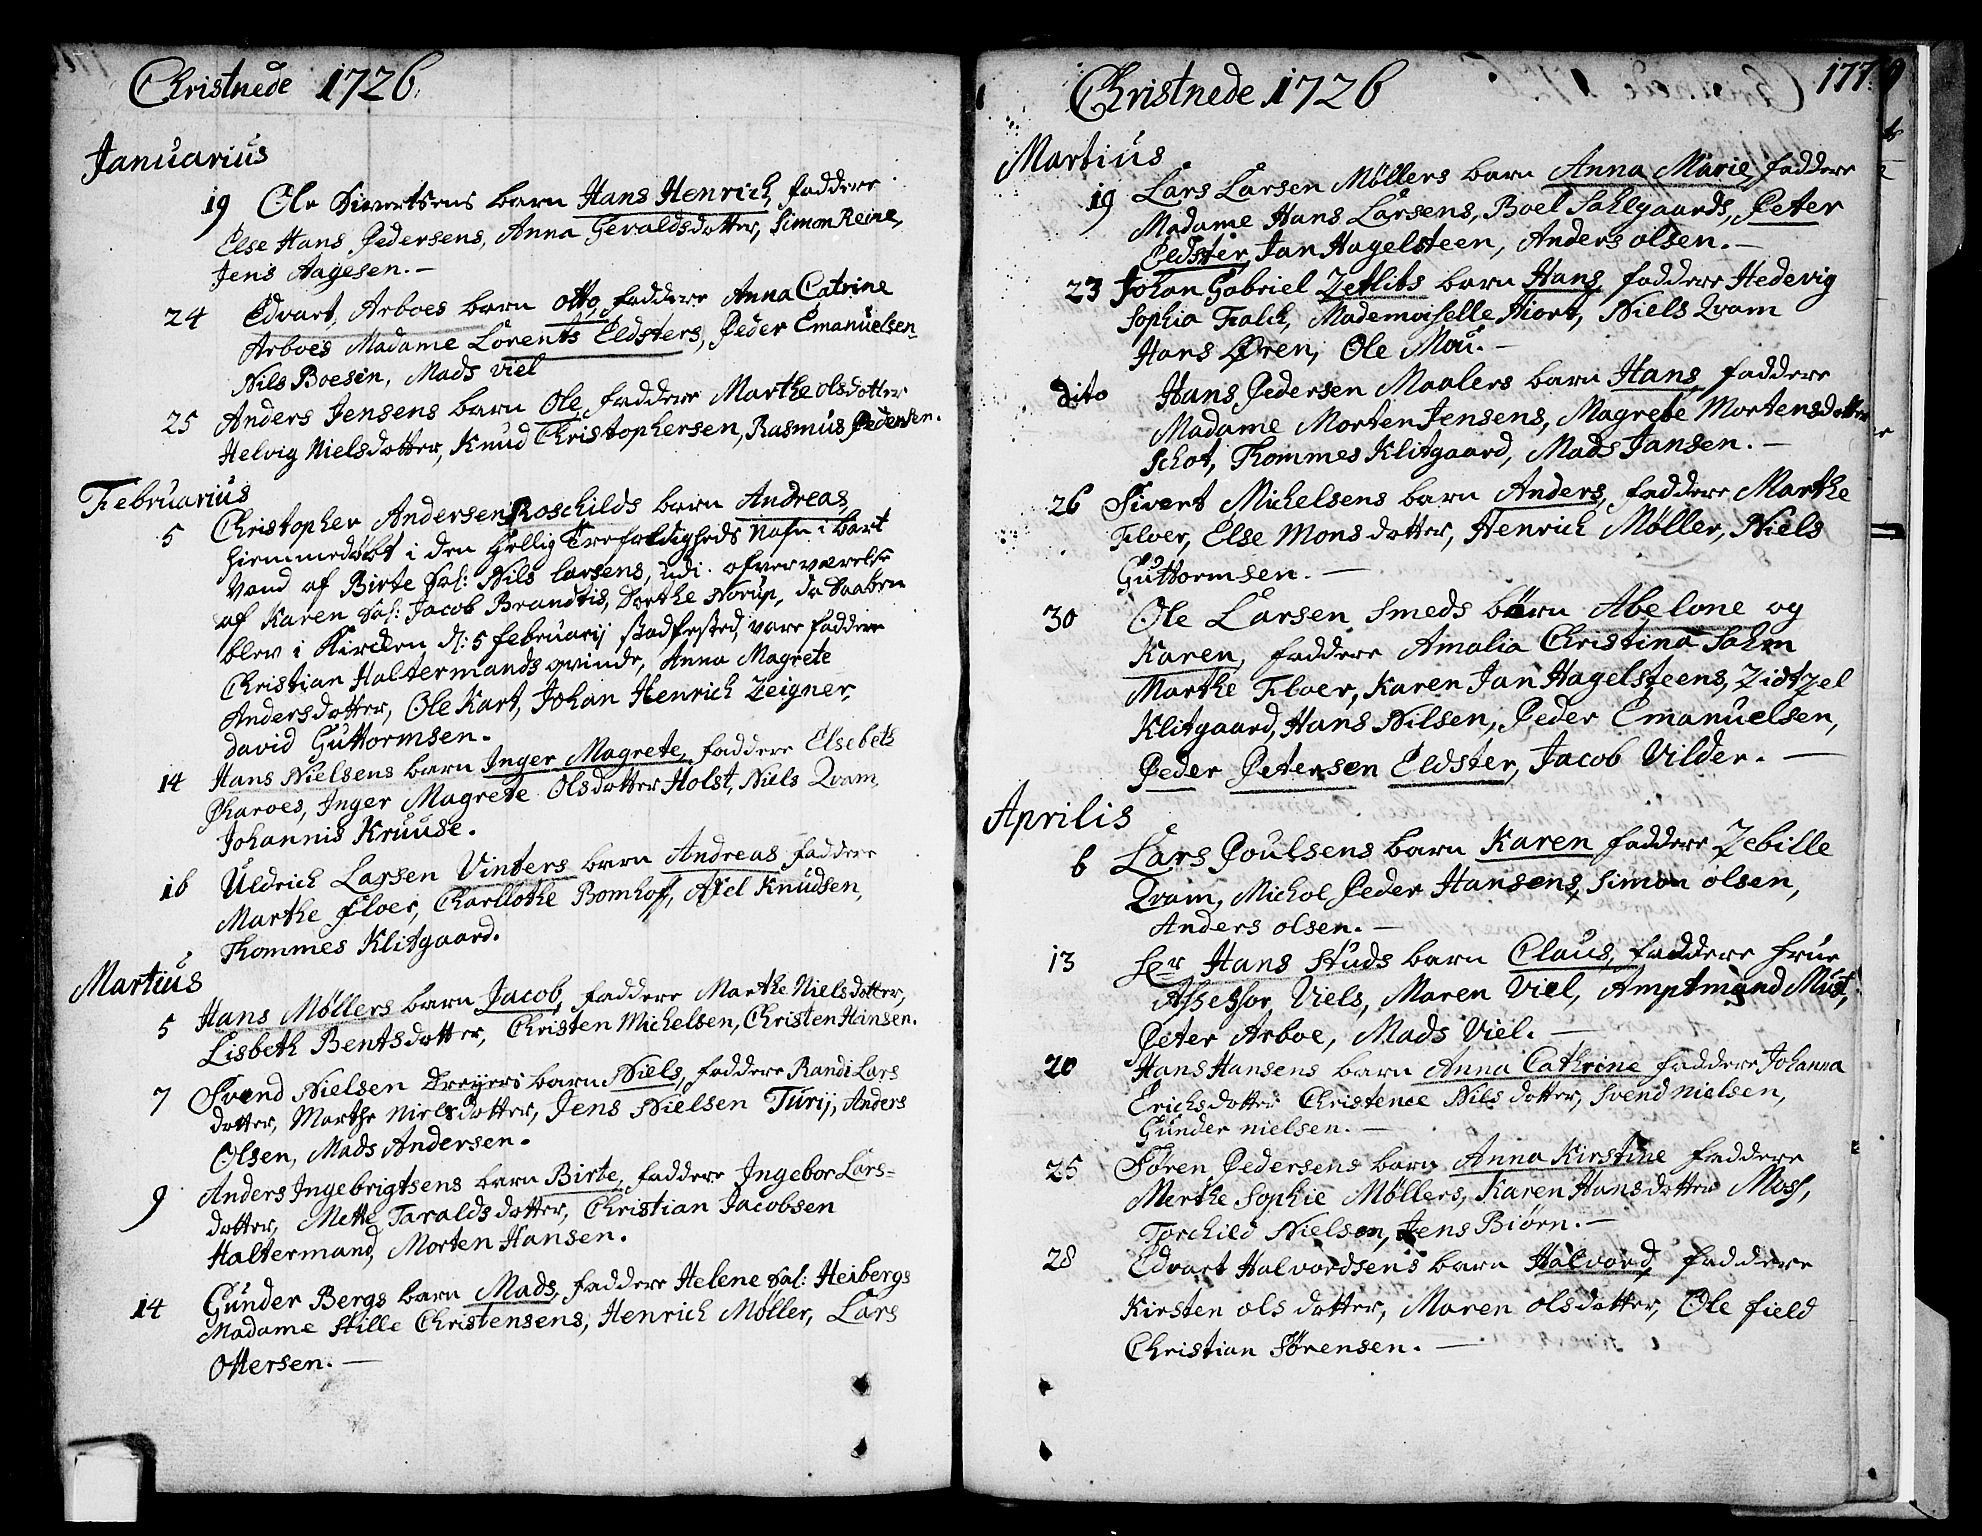 Christnede 1726.
Januarius
19 Ole Sivertsens barn Hans Henrich, faddere
Else Hans Pedersens, Anna Geraldsdotter, Simon Reine,
Jens Aagesen.—
24 Edvart Arboes barn Otto, faddere Anna Catrine
Arboes Madame Lorents Eldsters, Peder Emanuelsen
Nils Boesen, Mads Viel
25 Anders Jensens barn Ole, faddere Marthe olsdotter
Helvig Nielsdotter, Knud Christophersen, Rasmus Pedersen.
Februarius
5 Christopher Andersen Roschilds barn Andreas,
hiemmedøbt i den Hellig Trefoldigheds Nafn i bart
Vand af Birte Sal: Nils Larsens, udi ofverværelse
af Karen Sal: Jacob Brandtis, Dorthe Norup, da Daaben
blev i Kircken d: 5 februarij stadfested, vare faddere
Christian Haltermands qvinde, Anna Magrete
Andersdotter, Ole Kart, Johan Henrich Zeigner,
David Guttormsen.
14 Hans Nielsens barn Inger Magrete, faddere Elsebeth
Pharoes, Inger Magrete Olsdotter Holst, Niels Qvam,
Johannis Kruuse.
16 Uldrich Larsen Vinters barn Andreas faddere
Marthe Floer, Charllothe Bomhoff, Axel Knudsen,
Thommes Klitgaard.
Martius
5 Hans Møllers barn Jacob, faddere Marthe Nielsdotter,
Lisbeth Bentsdotter, Christen Michelsen, Christen Hansen.
7 Svend Nielsen Dreyers barn Niels, faddere Randi Lars
dotter, Marthe Nielsdotter, Jens Nielsen Turij, Anders
Olsen, Mads Andersen.
9 Anders Ingebrigtsens barn Birte, faddere Ingebor Lars-
dotter, Mette Taraldsdotter, Christian Jacobsen
Haltermand, Morten Hansen.
14 Gunder Bergs barn Mads, faddere Helene Sal: Heibergs
Madame Hille Christensens, Henrich Møller, Lars
Ottersen.—
Christnede 1726
177.
Martius
19 Lars Larsen Møllers barn Anna Marie, faddere
Madame Hans Larsens, Boel Sahlgaards, Peter
Eldster, Jan Hagelsteen, Anders olsen.—
23 Johan Gabriel Zetlits barn Hans, faddere Hedevig
Sophia Falch, Mademoiselle Hiort, Niels Qvam
Hans Øren, Ole Mou.—
dito Hans Pedersen Maalers barn Hans, faddere
Madame Morten Jensens, Magrete Mortensdotter
Schot, Thommes Klitgaard, Mads Jansen.—
26 Sivert Michelsens barn Anders, faddere Marthe
Floer, Else Monsdotter, Henrich Møller, Niels
Guttormsen.—
30 Ole Larsen Smeds børn Abelone og
Karen, faddere Amalia Christina Sahm
Marthe Floer, Karen Jan Hagelsteens, Zidtzel
Klitgaard, Hans Nilsen, Peder Emanuelsen,
Peder Petersen Eldster, Jacob Vilder.—
Aprilis
6 Lars Poulsens barn Karen faddere Zebille
Qvam, Michol Peder Hansens, Simon olsen,
Anders olsen.—
13 Her Hans Huds barn Claus, faddere Frue
Assessor Viels, Maren Viel, Amptmand Must,
Peter Arboe, Mads Viel.—
20 Hans Hansens barn Anna Cathrine faddere Johanna
Erichsdotter Christence Nilsdotter, Svend Nielsen,
Gunder nielsen.—
25 Søren Pedersens barn Anna Kirstine faddere
Merthe Sophie Møllers, Karen Hansdotter Moss,
Torchild Nielsen, Jens Biørn.—
28 Edvart Halvordsens barn Halvord, faddere
Kirsten olsdotter, Maren olsdotter, Ole field
Christian Sørensen.—